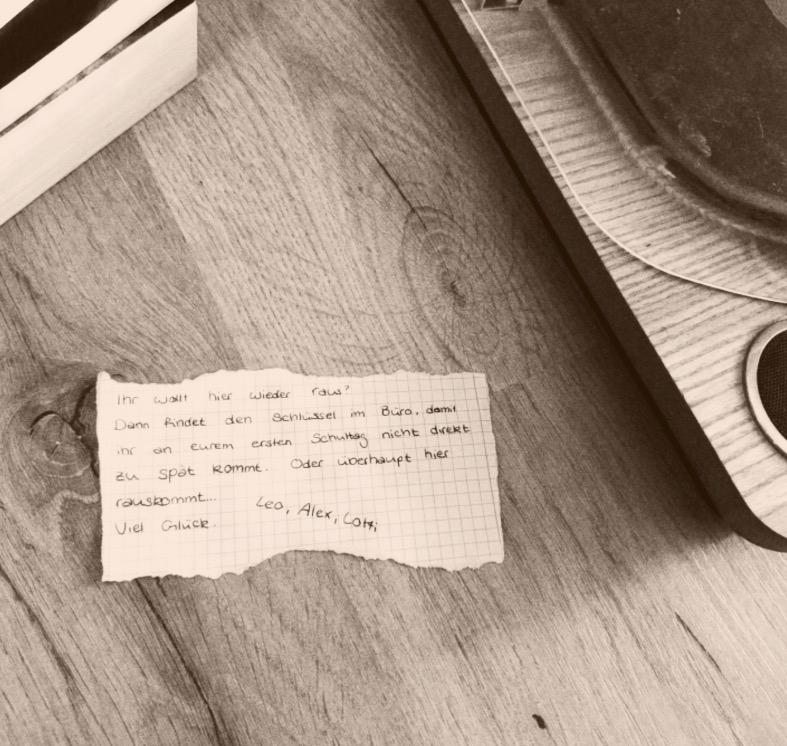 Ihr wollt hier wieder raus?
Dann findet den Schlüssel im Büro, damit
ihr an eurem ersten Schultag nicht direkt
zu spät kommt. Oder überhaupt hier
rauskommt...
Viel Glück. Leo, Alex,